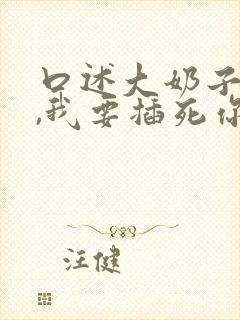 口述大奶子
,我要插死你
汪健